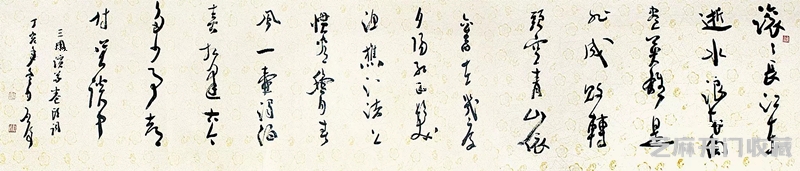 滚〻长江东
逝水浪花淘
尽英雄是
非成败轉
頭空青山依
舊在几度
夕阳红白髮
渔樵江渚上
惯看秋月春
風一壶浊酒
喜相逢古今
多少事都
付笑谈中
三國演义卷首词
丁亥年
芝麻开门收藏